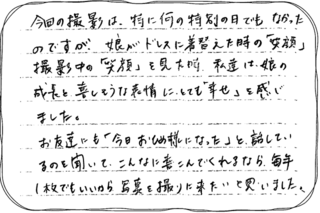 今回の撮影は、特に何の特別の日でもなかった
のですが、娘がドレスに着替えた時の「笑顔」
撮影中の「笑顔」を見た時、私達は、娘の
成長と喜しそうな表情に、とても「幸せ」を感じ
ました。
お友達にも「今日おひめ様になった」と、話してい
るのを聞いて、こんなに喜こんでくれるなら、毎年
1枚でもいいから写真を撮りに来たいと思いました。